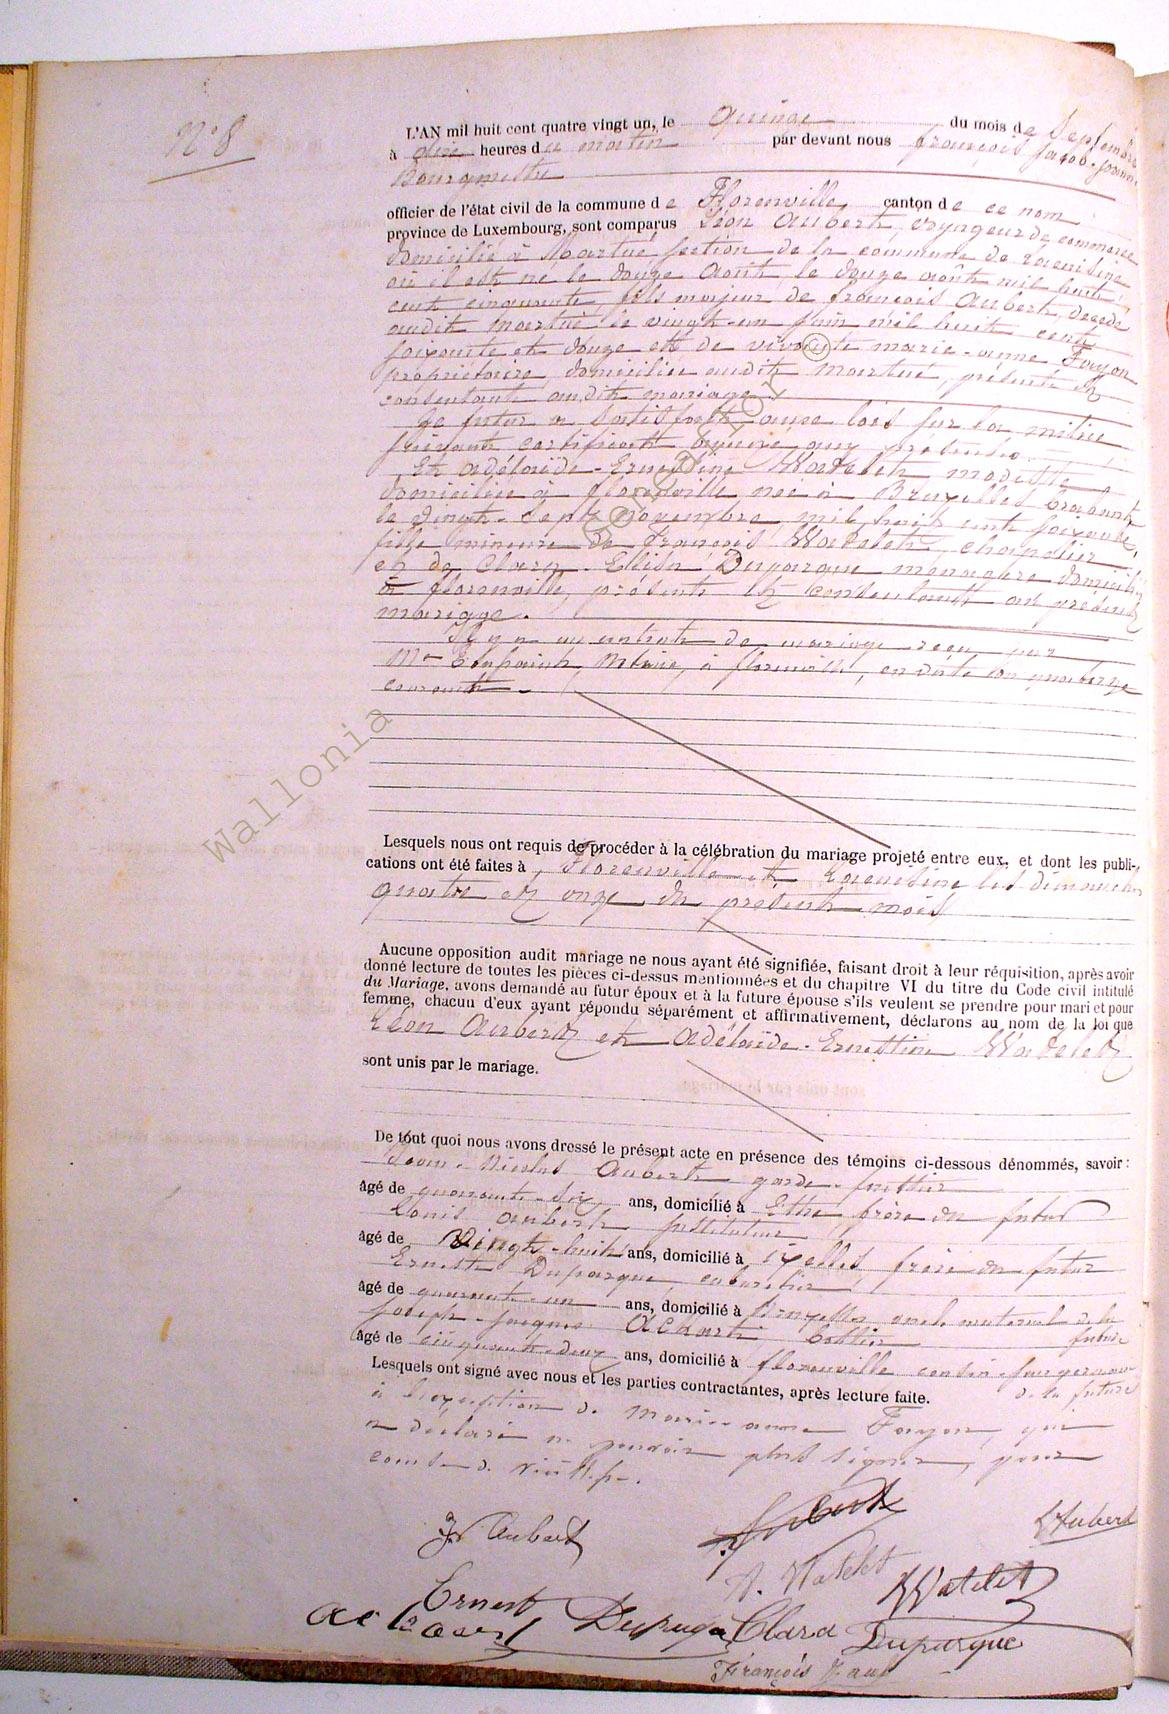 N° 8
L'AN mil huit cent quatre vingt un, le quinze du mois de Septembre
à dix heures du matin par devant nous François Jacob
Bourgmestre
officier de l'état civil de la commune de Florenville, canton de ce nom
province de Luxembourg, sont comparus Léon Aubert, voyageur de commerce
domicilié à Martué section de la commune de Lacuisine
où il est né le douze Août, le douze août mil huit
cent cinquante, fils majeur de François Aubert, décédé
audit Martué le vingt-un juin mil huit cent
soixante et douze et de vivante Marie-anne Foyon
propriétaire, domiciliée audit Martué, présente et
consentante audit mariage.
Le futur a satisfait aux lois sur la milice
suivant certificat annexé aux présentes.
Et Adélaïde-Ernestine Watelet, modiste
domiciliée à Florenville née à Bruxelles brabant
le vingt-sept novembre mil huit cent soixante,
fille mineure de François Watelet, chaudier
et de Clara-Elisa Duparque ménagère domiciliés
à Florenville, présents et consentants au présent
mariage.
Il y a un contrat de mariage reçu par
Me notaire, à Florenville, en date du quatorze
courant.
Lesquels nous ont requis de procéder à la célébration du mariage projeté entre eux, et dont les publi-
cations ont été faites à Florenville et Lacuisine les dimanches
quatre et onze du présent mois
Aucune opposition audit mariage ne nous ayant été signifiée, faisant droit à leur réquisition, après avoir
donné lecture de toutes les pièces ci-dessus mentionnées et du chapitre VI du titre du Code civil intitulé
du Mariage, avons demandé au futur époux et à la future épouse s'ils veulent se prendre pour mari et pour
femme, chacun d'eux ayant répondu séparément et affirmativement, déclarons au nom de la loi que
Léon Aubert et Adélaïde-Ernestine Watelet
sont unis par le mariage.
De tout quoi nous avons dressé le présent acte en présence des témoins ci-dessous dénommés, savoir :
Jean-Nicolas Aubert garde-frettier
âgé de quarante-six ans, domicilié à Ethe frère du futur
Louis Aubert instituteur
âgé de vingt-huit ans, domicilié à ixelles, frère du futur
Ernest Duparque, cabaretier
âgé de quarante-un ans, domicilié à Bruxelles oncle maternel de la future
Joseph-Jacques Achart, bottier
âgé de cinquante-deux ans, domicilié à Florenville cousin-sougermain de la future
Lesquels ont signé avec nous et les parties contractantes, après lecture faite.
à l'exception de Marie-anne Foyon, qui
a déclaré ne pouvoir plus signer, pour
cause de vieillesse.
Aubert
Aubert
LAubert
A. Watelet
Watelet
Ernest Duparque
Clara Duparque
Achart
François Jacob
Wallonia Genea-Mor ©